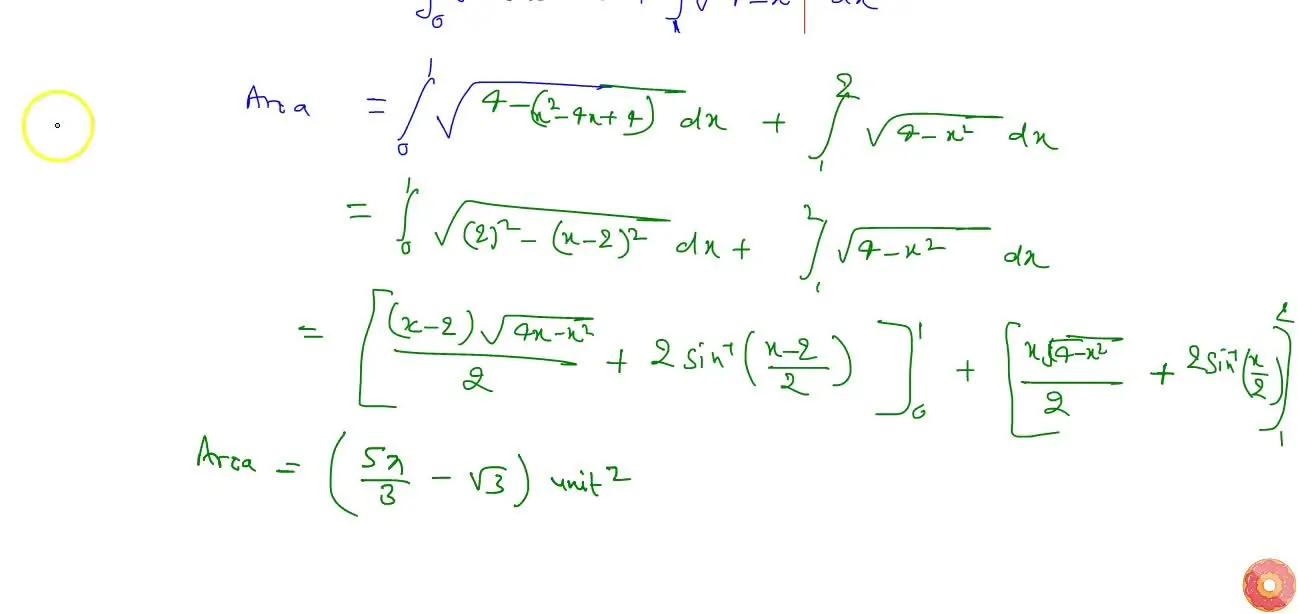 Area = ∫₀¹ √(4-(x²-4x+4)) dx + ∫₁² √(4-x²) dx
= ∫₀¹ √((2)²-(x-2)²) dx + ∫₁² √(4-x²) dx
= [(x-2)√(4x-x²)/2 + 2 sin⁻¹((x-2)/2)]₀¹ + [x√(4-x²)/2 + 2 sin⁻¹(x/2)]₁²
Area = (5π/3 - √3) unit²